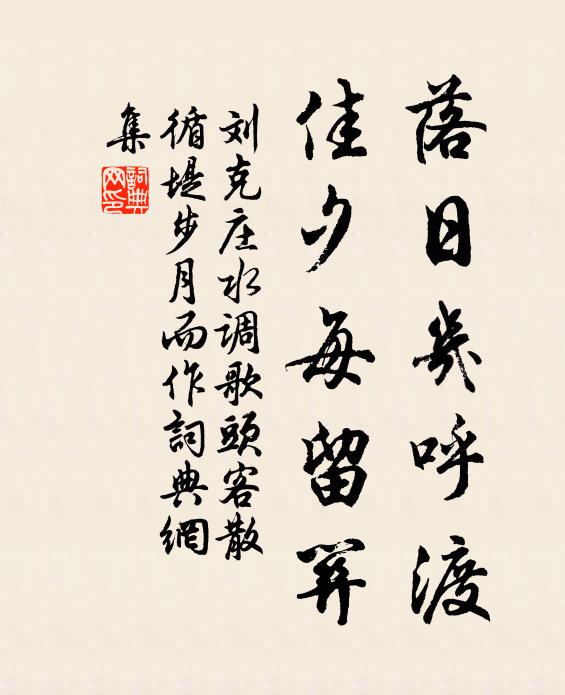 落日幾呼渡
佳夕每留關
刘克庄水调歌頭客散
循堤步月而作詞典網
集
詞典
网印